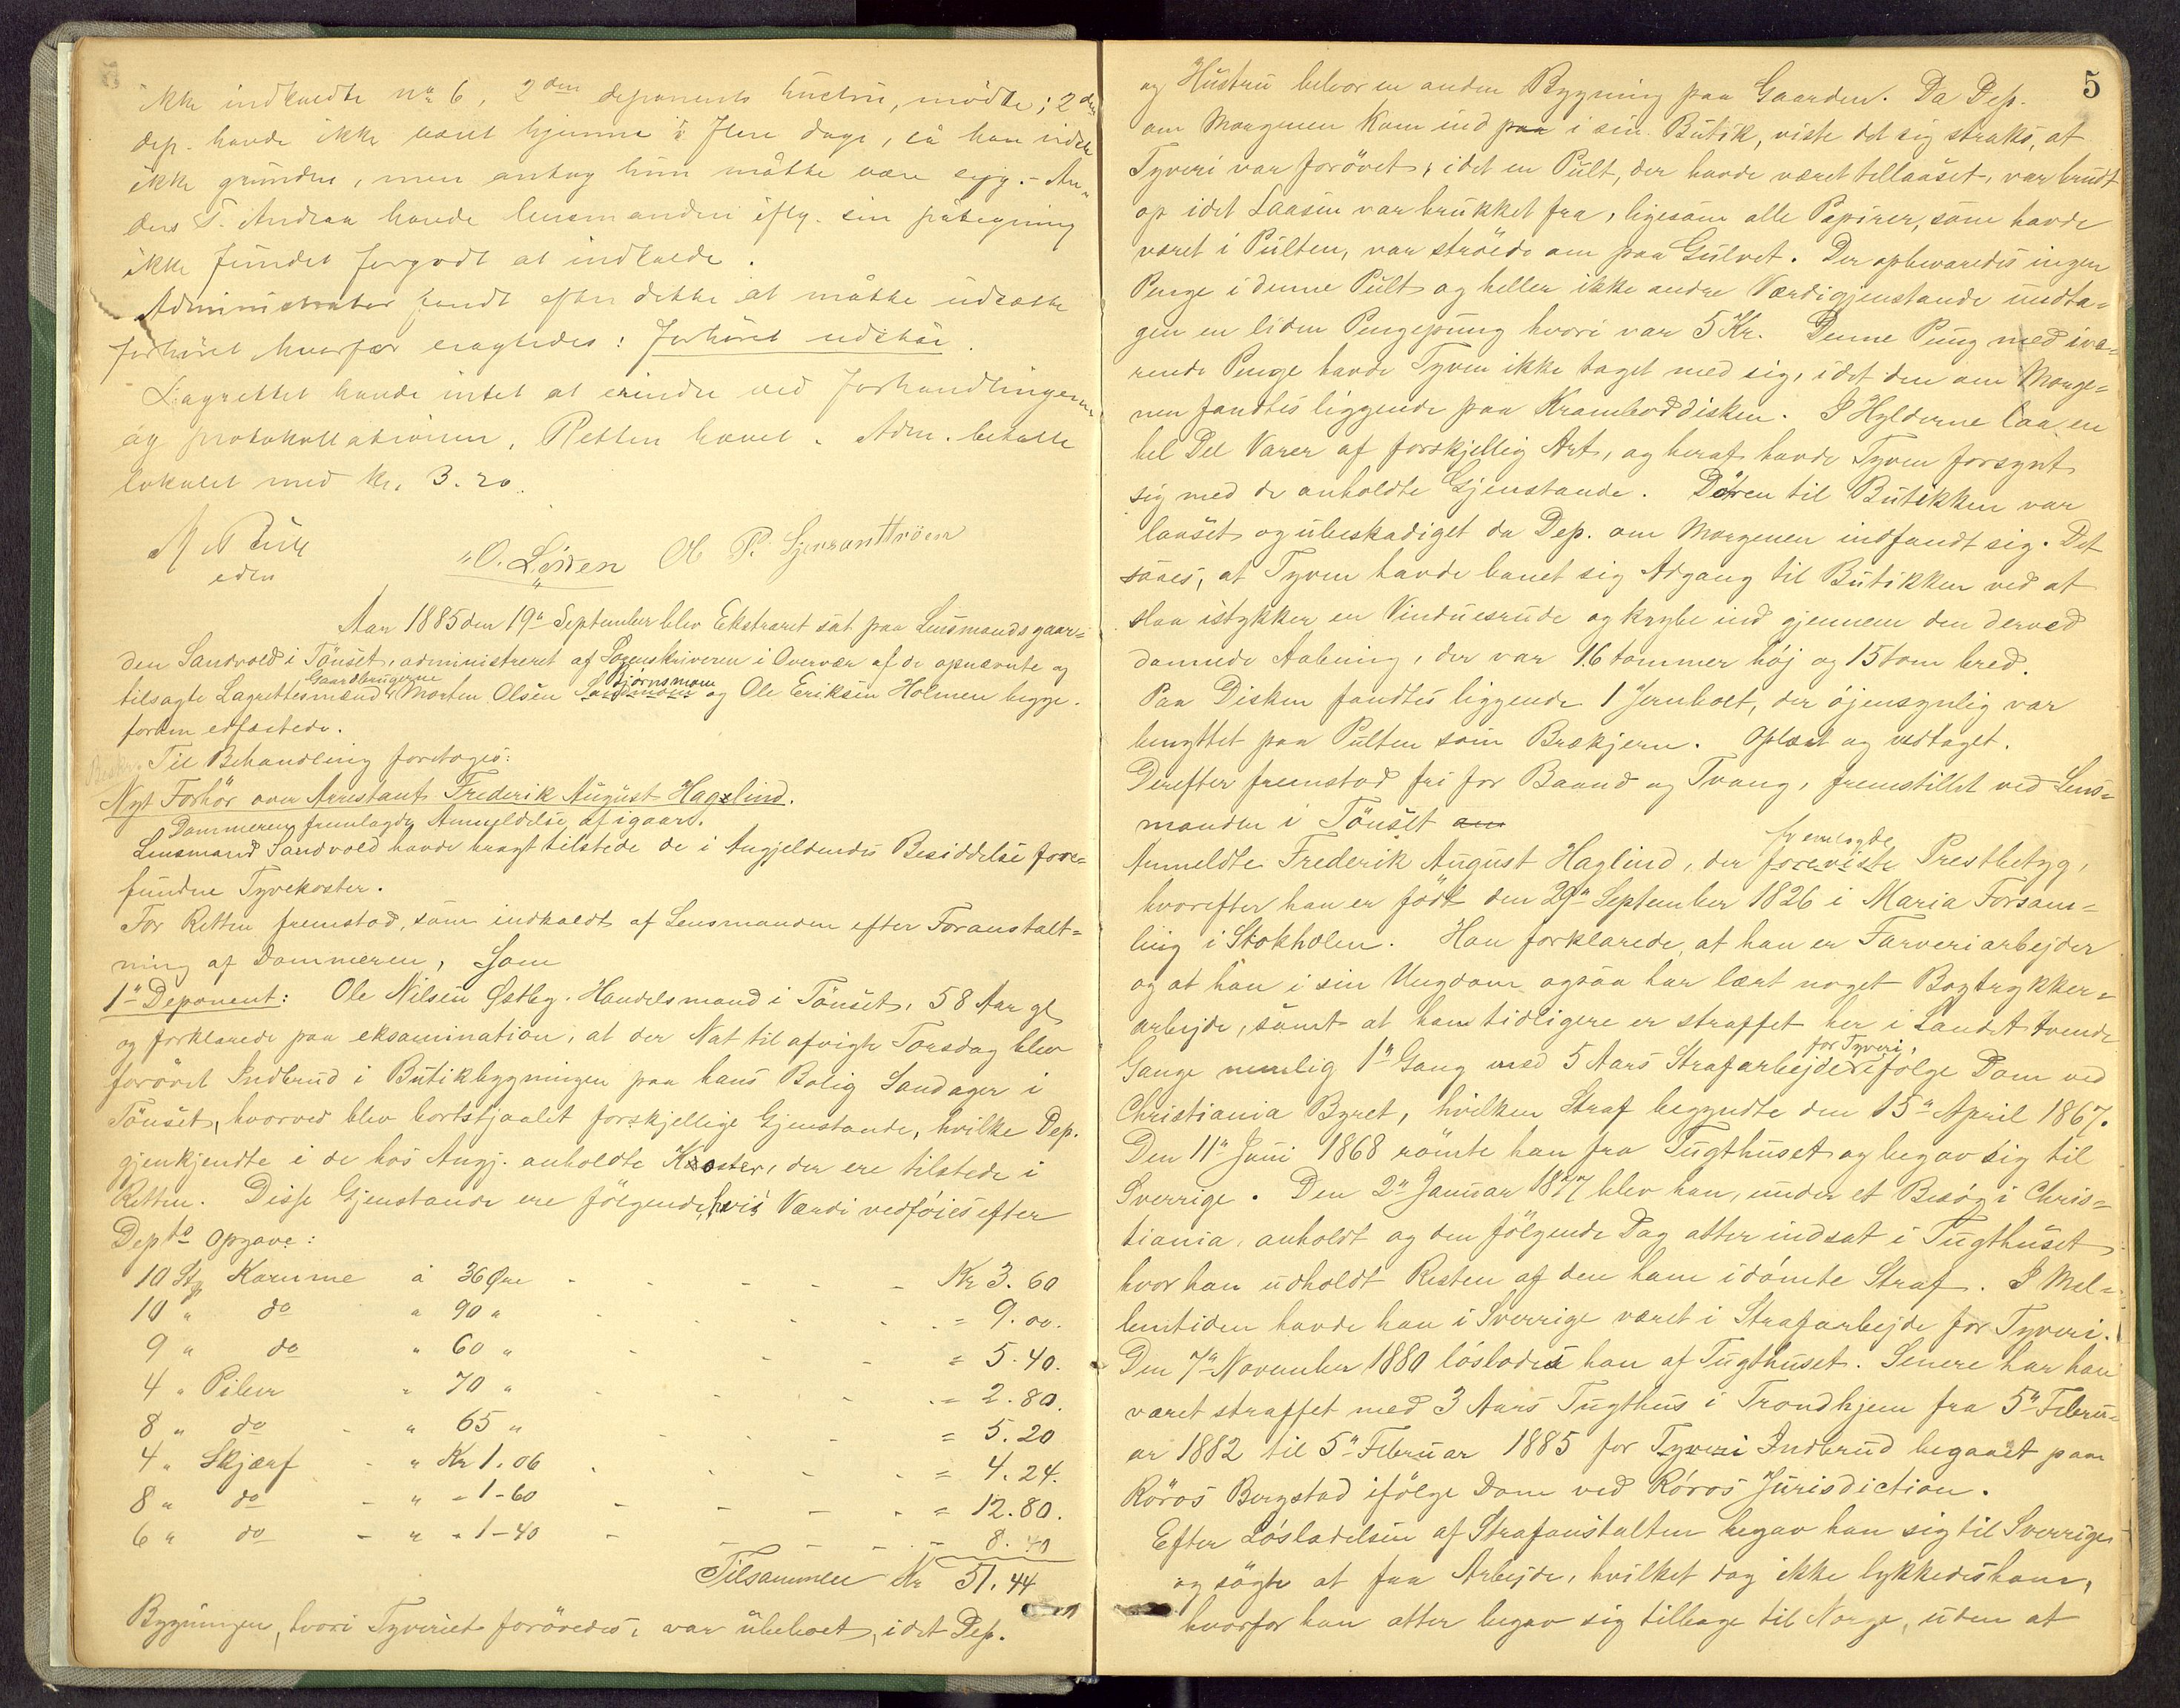 ikke indkaldte no 6, 2den deponents hustru, mødte; 2den
dep. havde ikke været hjemme i flere dage, så han vidste
ikke grunden, men antog hun måtte være syg. - An-
ders T. Andraa havde lensmanden iflg. sin påtegning
ikke fundet forgodt at indkalde.
Administrator fandt efter dette at måtte udsætte
forhøret hvorfor eragtedes: Forhøret udstår.
Lagrettet havde intet at erindre ved forhandlingerne
og protokollationen. Retten hævet. Adm. betalte
lokalet med kr. 3.20.
O. Løsen Ole P.
Aar 1885 den 19de September blev Ekstraret sat paa Lensmandsgaar=
den Sandvold i Tönset, administreret af Sorenskriveren i Overvær af de opnævnte og
Gaardbrugerne Bjørnsmoen
tilsagte Lagrettesmænd Morten Olsen Sandmoen og Ole Eriksen Holmen begge
forhen edfæstede.
Beskr. Til Behandling foretoges:
Nyt Forhör over Arrestant Frederik August Haglind.
Dommeren fremlagde Anmeldelse af igaar.
Lensmand Sandvold havde bragt tilstede de i Angjeldendes Besiddelse fore=
fundne Tyvekoster.
For Retten fremstod, som indkaldt af Lensmanden efter Foranstalt=
ning af Dommeren, Som
1ste Deponent: Ole Nilsen Østby, Handelsmand i Tönset, 58 Aar gl.
og forklarede paa eksamination, at der Nat til afvigte Torsdag blev
forövet Indbrud i Butikbygningen paa hans Bolig Sandager i
Tönset, hvorved blev bortstjaalet forskjellige Gjenstande, hvilke Dep.
gjenkjendte i de hos Angj. anholdte Koster, der ere tilstede i
Retten. Disse Gjenstande ere fölgende, hvis Værdi vedföies efter
Depts Opgave:
10 Stk Kamme à 36 Øre - - - - Kr 3.60
10 " do " 90 " - - - - = 9.00.
9 " do " 60 " - - - = 5.40.
4 " Piber " 70 " - - - = 2.80.
8 " do - " 65 " - - - = 5.20
4 " Skjærf - " Kr 1.06 - - - - = 4.24.
8 " do - " = 1-60 - - - - = 12.80.
6 " do - " = 1-40 - - - - = 8.40
Tilsammen Kr 51.44
Bygningen, hvori Tyveriet forövedes, var ubeboet, idet Dep.
5
og Hustru bebor en anden Bygning paa Gaarden. Da Dep.
om Morgenen kom ind paa i sin Butik, viste det sig straks, at
Tyveri var forövet, idet en Pult, der havde været tillaaset, var brudt
op idet Laasen var brukket fra, ligesom alle Papirer, som havde
været i Pulten, var ströede om paa Gulvet. Der opbevaredes ingen
Penge i denne Pult og heller ikke andre Værdigjenstande undta=
gen en liden Pengepung hvori var 5 Kr. Denne Pung med ivæ=
rende Penge havde Tyven ikke taget med sig, idet den om Morge=
nen fandtes liggende paa Kramboddisken. I Hylderne laa en
hel Del Varer af forskjellig Art, og heraf havde Tyven forsynt
sig med de anholdte Gjenstande. Dören til Butikken var
laaset og ubeskadiget da Dep. om Morgenen indfandt sig. Det
saaes, at Tyven havde banet sig Adgang til Butikken ved at
slaa istykker en Vinduesrude og krybe ind gjennem den derved
dannede Aabning, der var 16 tommer höj og 15 tom bred.
Paa Disken fandtes liggende 1 Jernbolt, der öjensynlig var
benyttet paa Pulten som Brækjern. Oplæst og vedtaget.
Derefter fremstod fri for Baand og Tvang, fremstillet ved Lens=
manden i Tönset
fremlagde
Anmeldte Frederik August Haglind, der foreviste Prestbetyg,
hvorefter han er födt den 29de September 1826 i Maria Forsam=
ling i Stokholm. Han forklarede, at han er Farveriarbejder
og at han i sin Ungdom ogsaa har lært noget Bogtrykker=
arbejde, samt at han tidligere er straffet her i Landet tvende
for Tyveri,
Gange nemlig 1ste Gang med 5 Aars Strafarbejde ifölge Dom ved
Christiania Byret, hvilken Straf begyndte den 15de April 1867.
Den 11te Juni 1868 römte han fra Tugthuset og begav sig til
Sverrige. Den 2den Januar 1877 blev han, under et Besög i Chris=
tiania, anholdt og den fölgende Dag atter indsat i Tugthuset
hvor han udholdt Resten af den ham idömte Straf. I Mel=
lemtiden havde han i Sverrige været i Strafarbejde for Tyveri.
Den 7de November 1880 löslodes han af Tugthuset. Senere har han
været straffet med 3 Aars Tugthus i Trondhjem fra 5te Febru=
ar 1882 til 5te Februar 1885 for Tyveri Indbrud begaaet paa
Röros Bergstad ifölge Dom ved Röros Jurisdiction.
Efter Lösladelsen af Strafanstalten begav han sig til Sverrige
og sögte at faa Arbejde, hvilket dog ikke lykkedes ham,
hvorfor han atter begav sig tilbage til Norge, uden at